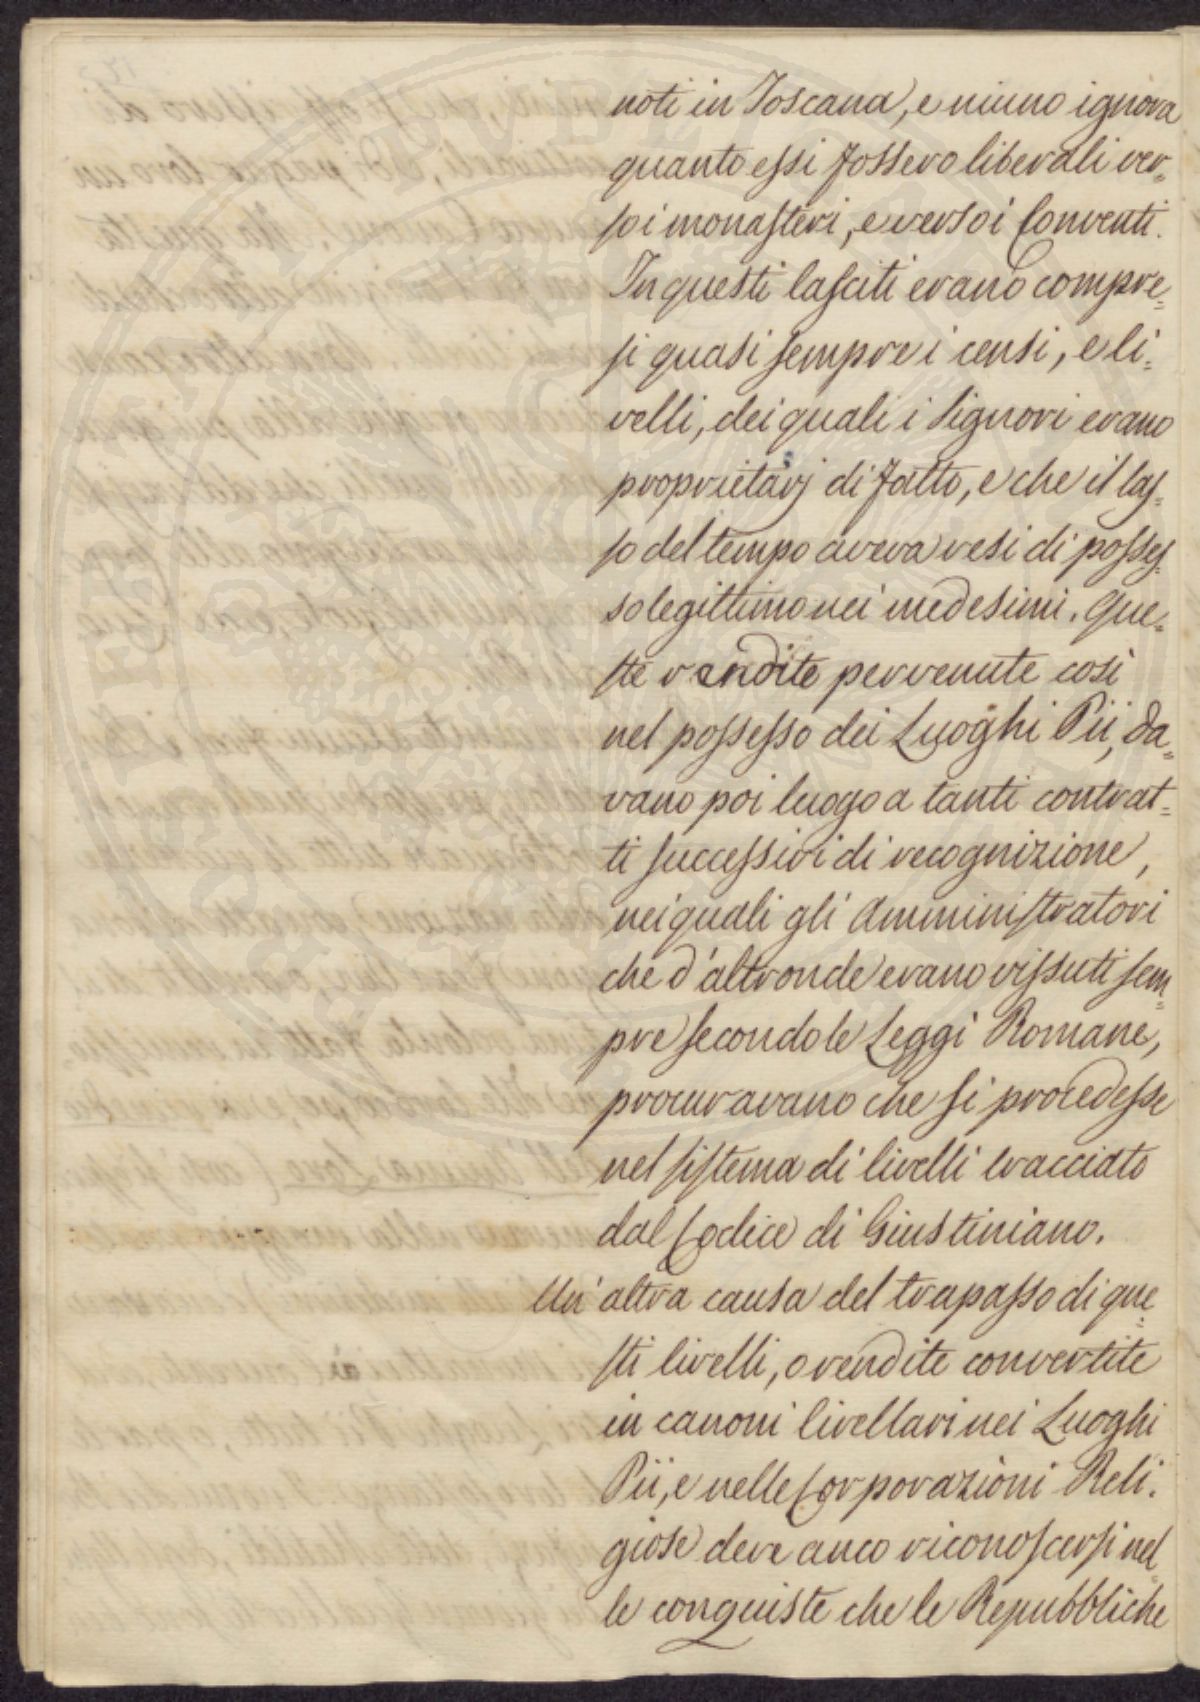 noti in Toscana, e niuno ignora
quanto essi fossero liberali ver=
so i monasteri, e verso i Conventi.
In questi lasciti erano compre=
si quasi sempre i censi, e li=
velli, dei quali i Signori erano
proprietarj di fatto, e che il las=
so del tempo aveva resi di posses=
so legittimo nei medesimi. Que=
ste rendite pervenute così
nel possesso dei Luoghi Pii, da=
vano poi luogo a tanti contrat=
ti successivi di recognizione,
nei quali gli Amministratori
che d'altronde erano vissuti sem=
pre secondo le Leggi Romane,
procuravano che si procedesse
nel sistema di livelli tracciato
dal Codice di Giustiniano.
Un'altra causa del trapasso di que=
sti livelli, o rendite convertite
in canoni livellari nei Luoghi
Pii, e nelle Corporazioni Reli=
giose deve anco riconoscersi nel=
le conquiste che le Repubbliche